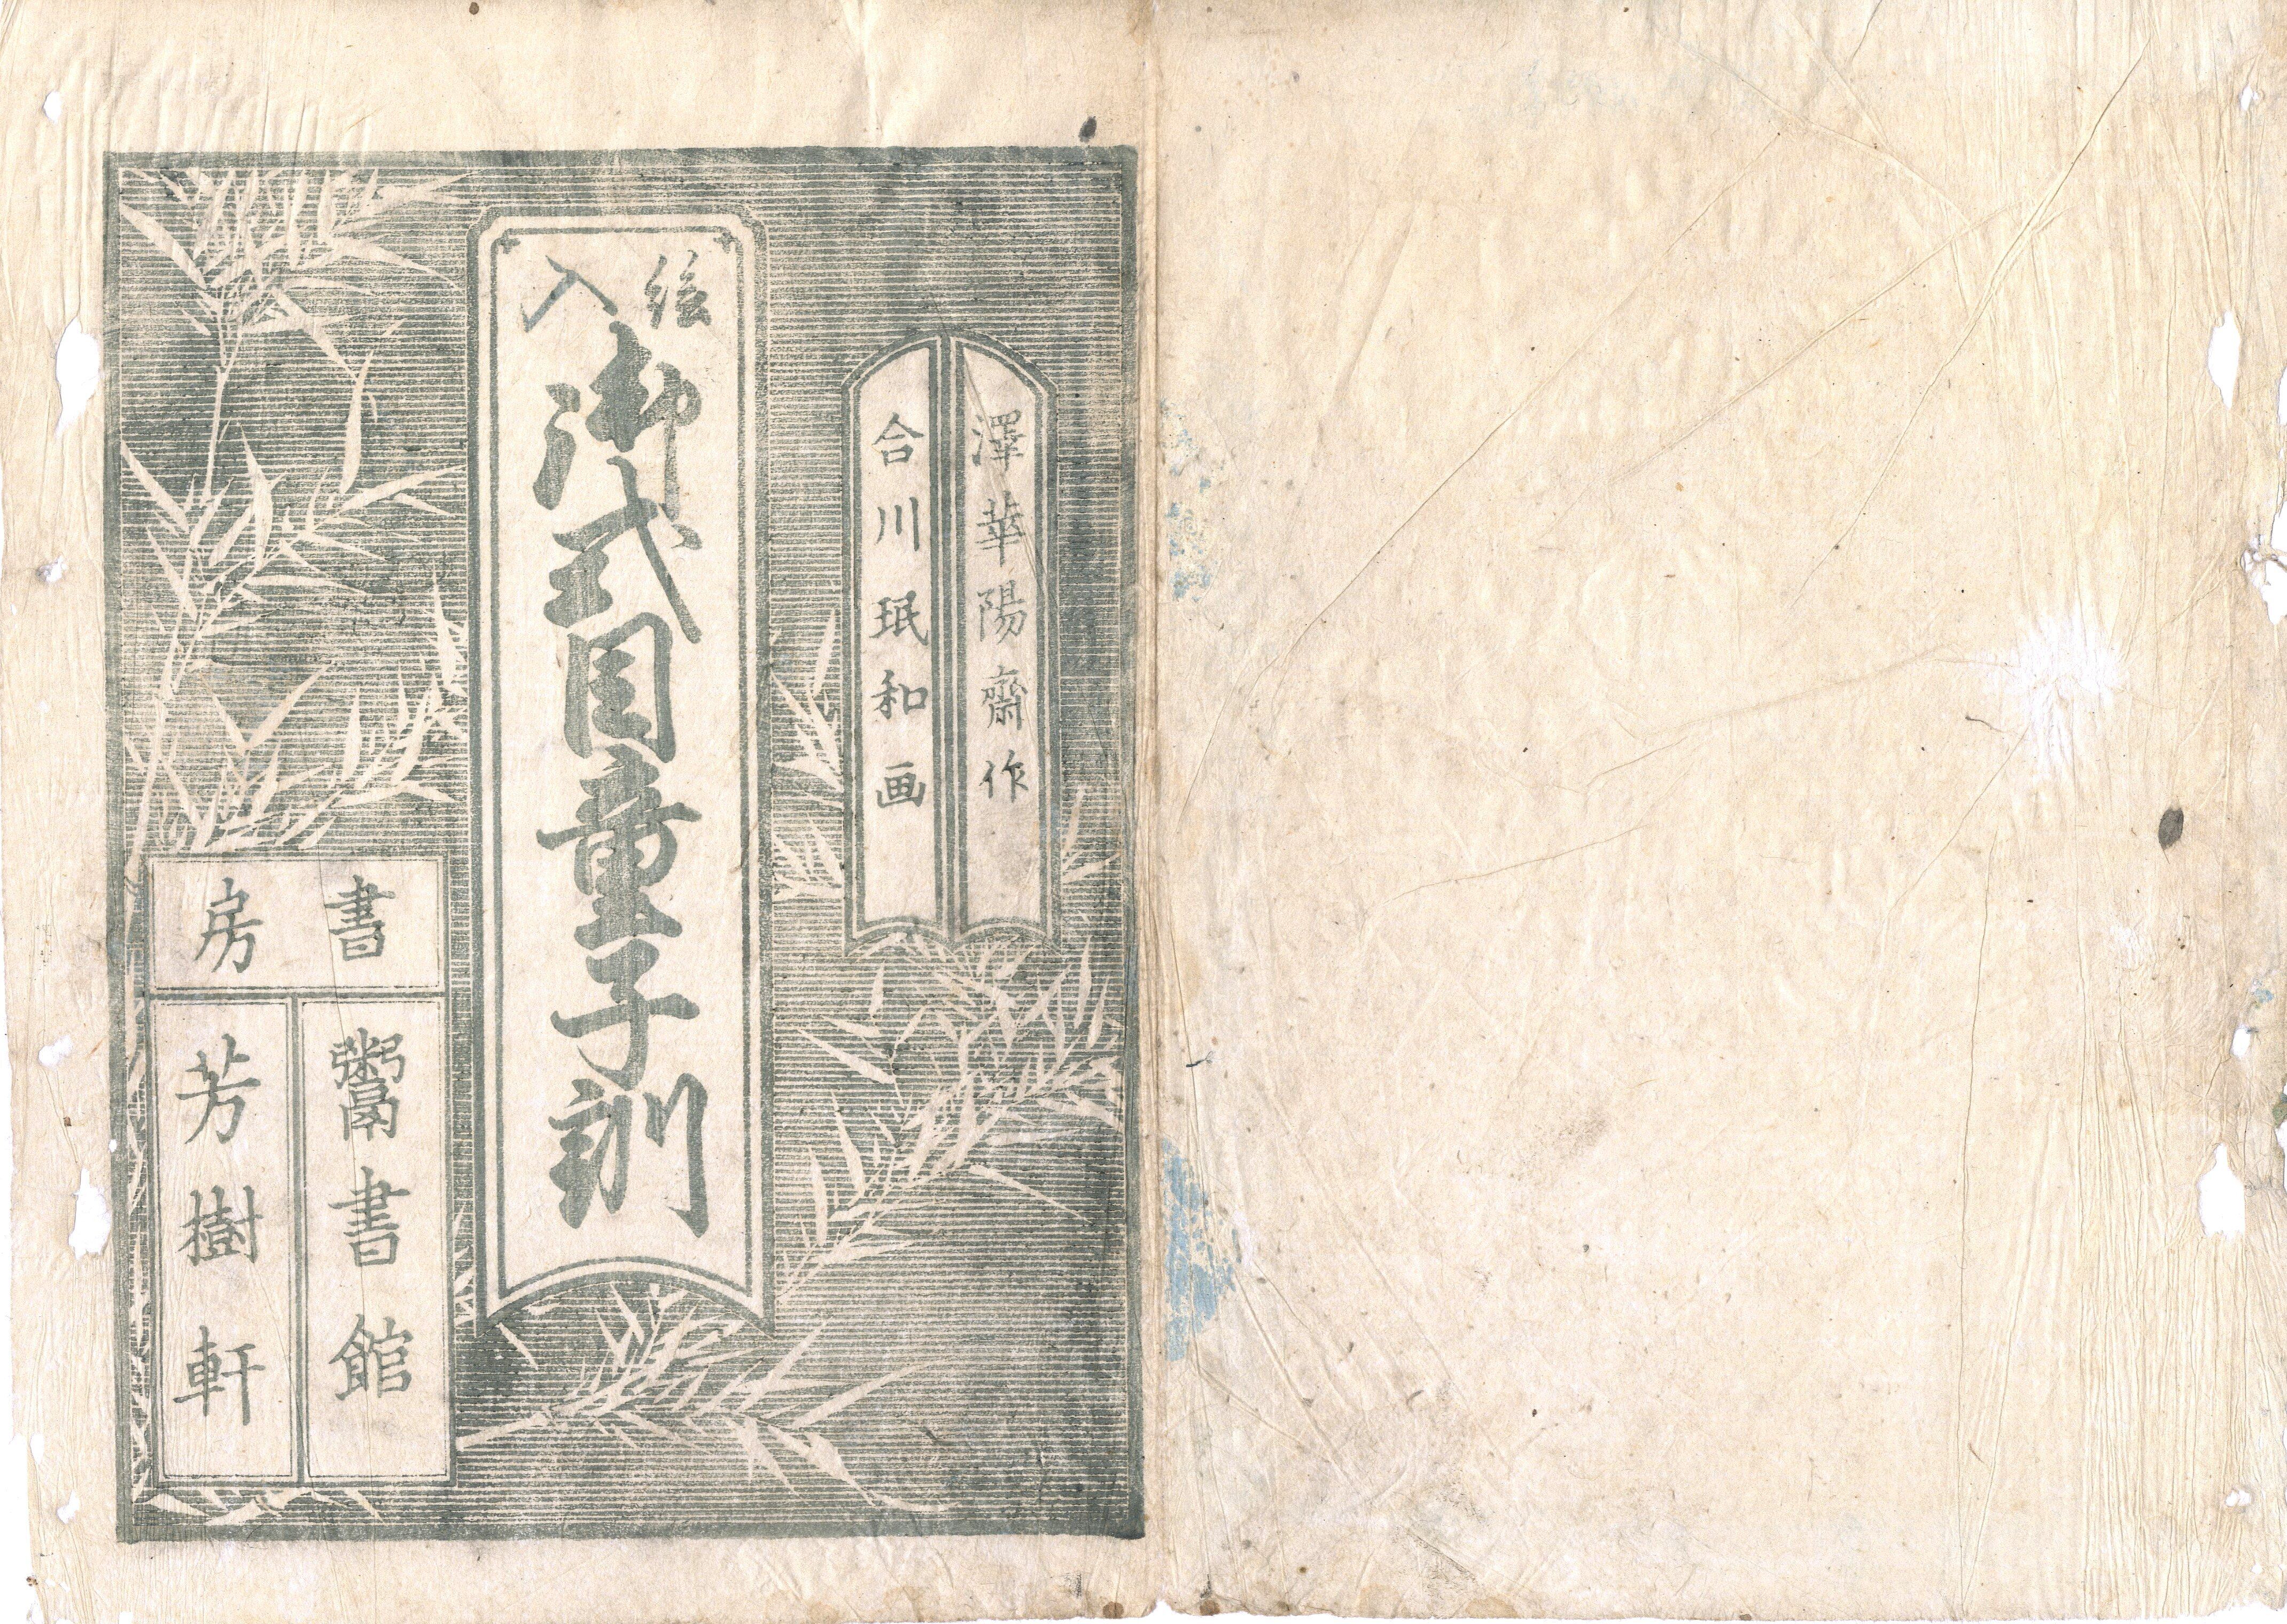 澤華陽齋作
合川珉和画
絵入
御式目童子訓
書房
鬻書館
芳樹軒